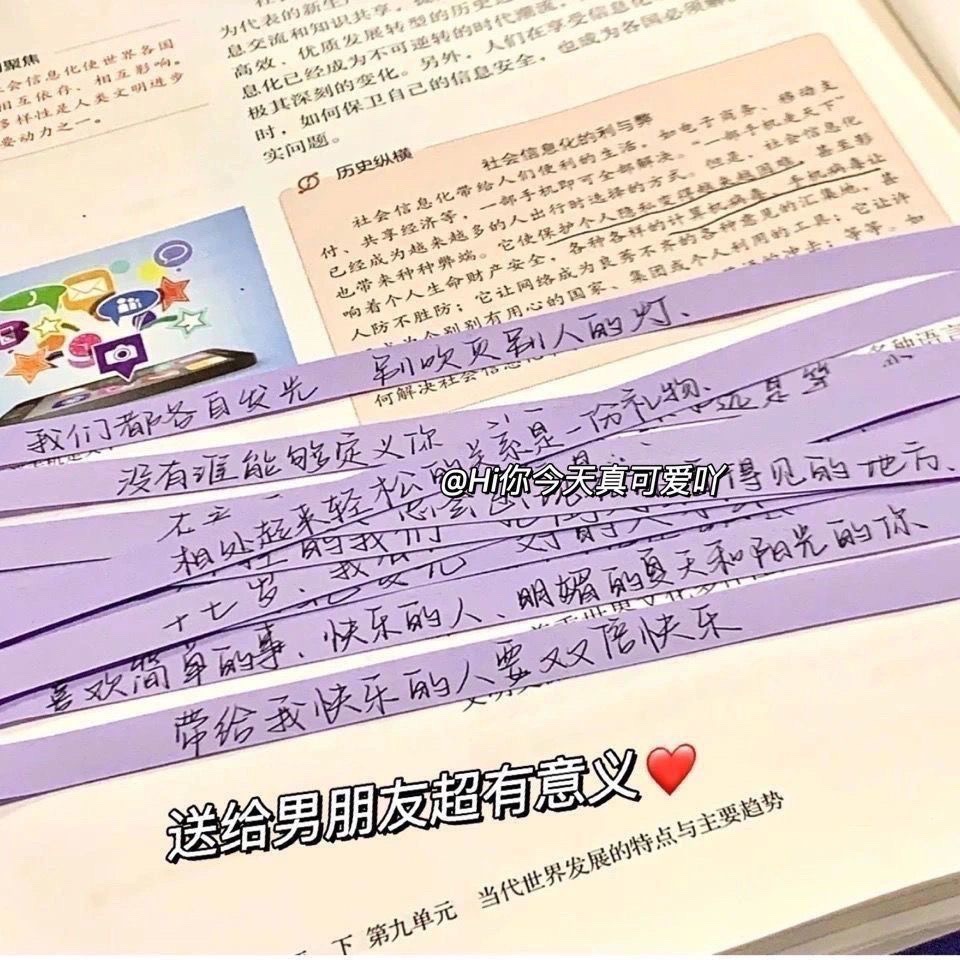 为代表的新生产
息交流和知识共享，
高效、优质发展转型的历史进
息化已经成为不可逆转的时代潮流，
极其深刻的变化。另外，人们在享受信息化
时，如何保卫自己的信息安全，也成为各国必须解
实问题。
聚焦
会信息化使世界各国
相互依存、相互影响。
多样性是人类文明进步
要动力之一。
历史纵横
社会信息化的利与弊
社会信息化带给人们便利的生活，如电子商务、移动支
付、共享经济等，一部手机即可全部解决。“一部手机走天下”
已经成为越来越多的人出行时选择的方式。但是，社会信息化
也带来种种弊端。它使保护个人隐私变得越来越困难，甚至影
响着个人生命财产安全，各种各样的计算机病毒、手机病毒让
人防不胜防；它让网络成为良莠不齐的各种意见的汇集地，甚
个别别有用心的国家、集团或个人利用的工具；它让许
的冲击；等等。如
何解决社会信息化
多种语言
我们都各自发光 别吹灭别人的灯、
没有谁能够定义你
还是笨
相处起来轻松的关系是一份礼物、
的我们 总会
得见的地方、
十七岁、我
喜欢简单的事、快乐的人、明媚的夏天和阳光的你、
带给我快乐的人要双倍快乐
@Hi你今天真可爱吖
送给男朋友超有意义❤️
下 第九单元 当代世界发展的特点与主要趋势